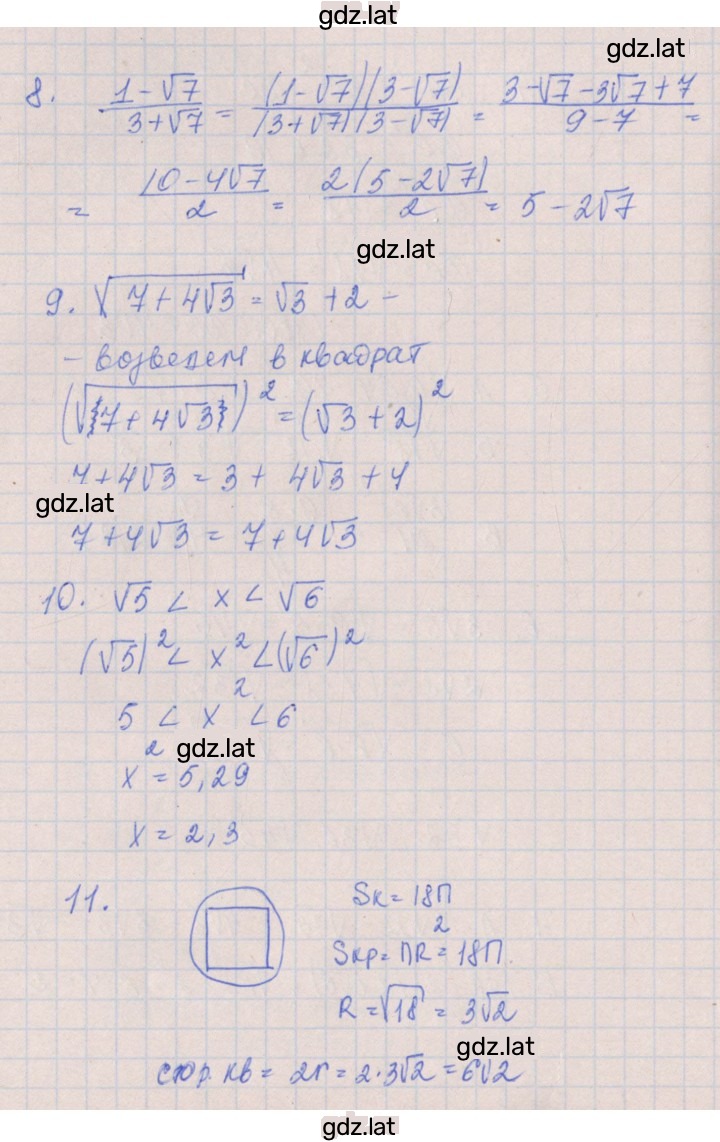 gdz.lat
gdz.lat
8. (1-√7)/(3+√7) = ((1-√7)(3-√7))/((3+√7)(3-√7)) = (3-√7-3√7+7)/(9-7) =
= (10-4√7)/2 = (2(5-2√7))/2 = 5-2√7
gdz.lat
9. √(7+4√3) = √3 + 2 -
- возведем в квадрат
(√(7+4√3))² = (√3+2)²
7+4√3 = 3 + 4√3 + 4
gdz.lat
7+4√3 = 7+4√3
10. √5 < x < √6
(√5)² < x² < (√6)²
5 < x² < 6
gdz.lat
x² = 5,29
x = 2,3
11. Sк = 18П
Sкр = ПR² = 18П
R = √18 = 3√2
gdz.lat
стор. кв = 2r = 2·3√2 = 6√2
gdz.lat